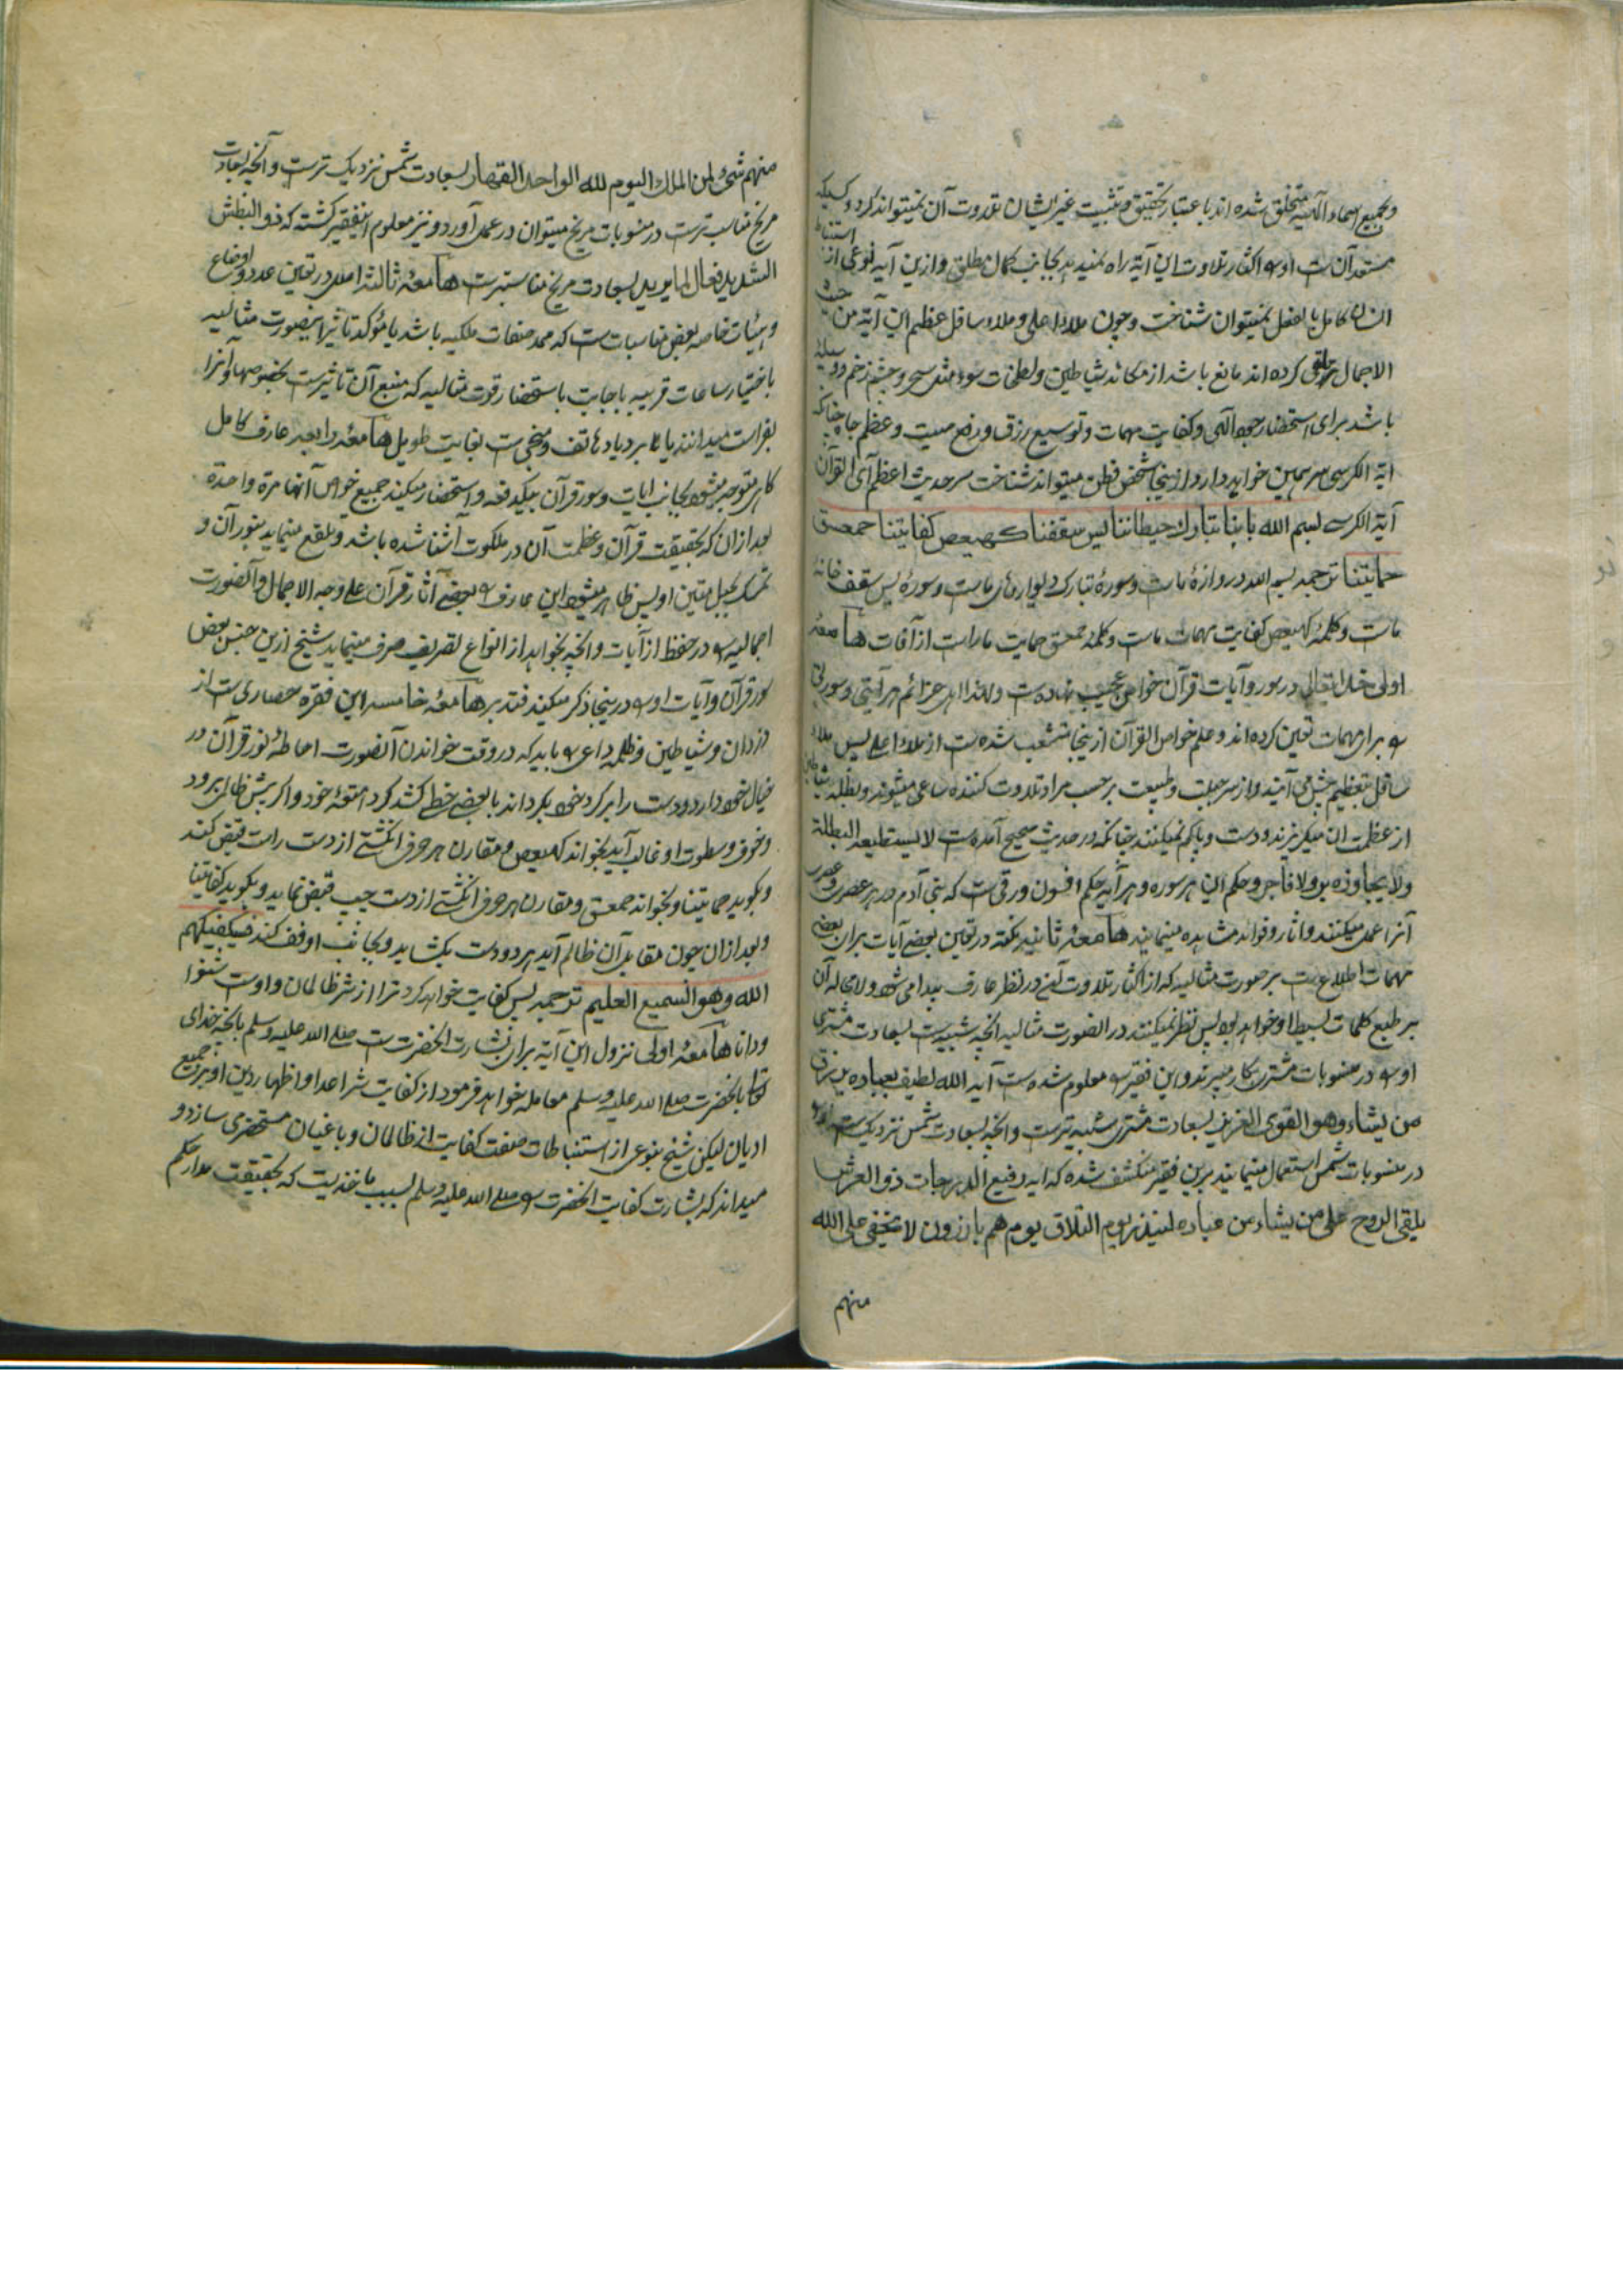 وبجمیع اسماء الٓهیه متخلق شده اند باعتبار تحقیق و تثبیت غیر ایشان تلاوت آن نمیتواند کرد و کسیکه
مستعد آن ست او را اکثار تلاوت این آیة راه نمید بد بجانب کمال مطلق و ازین آیه نوعی از استنباط
انسان کامل بالفعل نمیتوان شناخت و چون ملاء اعلی و ملاء سافل عظم این آیة من حیث
الاجمال تلقی کرده اند مانع باشد از مکائد شیاطین و لطمات سوء مثل سحر و چشم زخم و وسیلهٔ
باشد برای استحضار رحمة الٓهی و کفایت مهمات و توسیع رزق و رفع صیت و عظم جاه چنانکه
ایة الکرسی سر همین خواهد دارد و از ینجا شخص فطن میتواند شناخت سر حدیث اعظم آی القرآن
آیة الکرسی بسم الله بابنا تبارك حیطاننا یس سقفنا کهیعص کفایتنا حمعسق
حمایتنا ترجمه بسم الله دروازهٔ ماست و سورهٔ تبارک دیوارهای ماست و سورهٔ یس سقف خانهٔ
ماست و کلمهٔ کهیعص کفایت مهمات ماست و کلمهٔ حمعسق حمایت ماراست از آفات هامعهٔ
اولی خدا تعالی در سور و آیات قرآن خواص عجیب نهاده ست و لهذا اهل عزائم هر آیتی و سورتی
را برای مهمات تعین کرده اند و علم خواص القرآن ازینجا منشعب شده ست از ملاء اعلی پس ملاء
سافل بتعظیم پیش می آیند و از سر جبلت و طبیعت بر حسب مراد تلاوت کننده ساعی میشوند و بطله شیاطین
از عظمت ان میگریزند و دست و پا گم میکنند چنانکه در حدیث صحیح آمده ست لا یستطیعه البطلة
ولا یجاوزه بر ولا فاجر و حکم این هر سوره و هر آیه حکم افسون و رقی ست که بنی آدم در هر عصری و مصری
آنرا عمل میکنند و اثار و فوائد مشاهده مینمایند هامعهٔ ثانیه نکته در تعین بعضی آیات برای بعضی
مهمات اطلاع ست بر صورت مثالیه که از اکثار تلاوت آنی در نظر عارف پیدا می شود و لا محاله آن
بر طبع کلمات بسیط او خواهد بود پس نظر میکنند در الصورت مثالیه انچه شبیه ست بسعادت مشتری
او را در منسوبات مشتری بکار میبرند و این فقیر را معلوم شده ست آیه الله لطیف بعباده یرزق
من یشاء وهو القوی العزیز بسعادت مشتری شبیه ترست و انچه بسعادت شمس نزدیک ست او را
در منسوبات شمس استعمال مینمایند برین فقیر منکشف شده که ایه رفیع الدرجات ذو العرش
یلقی الروح علی من یشاء من عباده لینذر یوم التلاق یوم هم بارزون لا یخفی علی الله
منهم
منهم شئ لمن الملك الیوم لله الواحد القهار بسعادت شمس نزدیک ترست و آنچه بسعادت
مریخ مناسب ترست در منسوبات مریخ میتوان در عمل آورد و نیز معلوم اینفقیر کشته که ذو البطش
الشدید فعال لما یرید بسعادت مریخ مناسبترست هامعهٔ ثالثه اصلی در تعین عدد و اوضاع
و هیئات خاصه بعض مناسبات ست که ممد صفات ملکیه باشد یا مؤکد تاثیر اینصورت مثالیه
باختیار ساعات قریبه باجابت باستحضار قوت مثالیه که منبع آن تاثیرست بخصوصها و آنرا
بفراست میدانند یا عابر دیا دهاتف و منجی ست بغایت طویل هامعهٔ رابعه عارف کامل
کاهی متوجه میشود بجانب ایات و سور قرآن بیکدفعه و استحضار میکند جمیع خواص آنها مرة واحدة
بعد ازان که بحقیقت قرآن و عظمت آن در ملکوت آشنا شده باشد و بلقع مینماید بنور آن و
تمسک بحبل متین او پس ظاهر میشود این عارف را بعضی آثار قرآن علی وجه الاجمال و الصورت
اجمالیه را در حفظ از آفات و انچه بخواهد از انواع تصریف صرف مینماید شیخ ازین جنس بعض
سور قرآن و آیات او را درینجا ذکر میکند فتدبر هامعهٔ خامسه این فقره حصاری ست از
دزدان و شیاطین و ظلمه داعی را باید که در وقت خواندن آنصورت احاطهٔ نور قرآن در
خیال خود دارد و دست را بر گرد خود بگرداند یا بعصی خط کشد گرد امتعهٔ خود و اگر پیش ظالمی برود
و خوف و سطوت او غالب آید بخواند کهیعص و مقارن هر حرف انگشتی از دست راست قبض کند
و بکوید حمایتنا و بخواند حمعسق و مقارن هر حرف انگشتی از دست چپ قبض نماید و بکوید کفایتنا
و بعد ازان چون مقابل آن ظالم آید هر دو دست بکشاید و بجانب او قف کند فسیکفیکهم
الله وهو السمیع العلیم ترجمه پس کفایت خواهد کرد ترا از شر ظالمان و اوست شنوا
و دانا هامعهٔ اولی نزول این آیة برای بشارت انحضرت ست صلی الله علیه وسلم بانچه خدای
تعالی بانحضرت صلی الله علیه وسلم معامله خواهد فرمود از کفایت شر اعدا و اظهار دین او بر جمیع
ادیان لیکن شیخ بنوعی از استنباطات صفت کفایت از ظالمان و باغیان مستحضر می سازد و
میداند که بشارت کفایت انحضرت را صلی الله علیه وسلم بسبب ماخذیست که بحقیقت مدار حکم